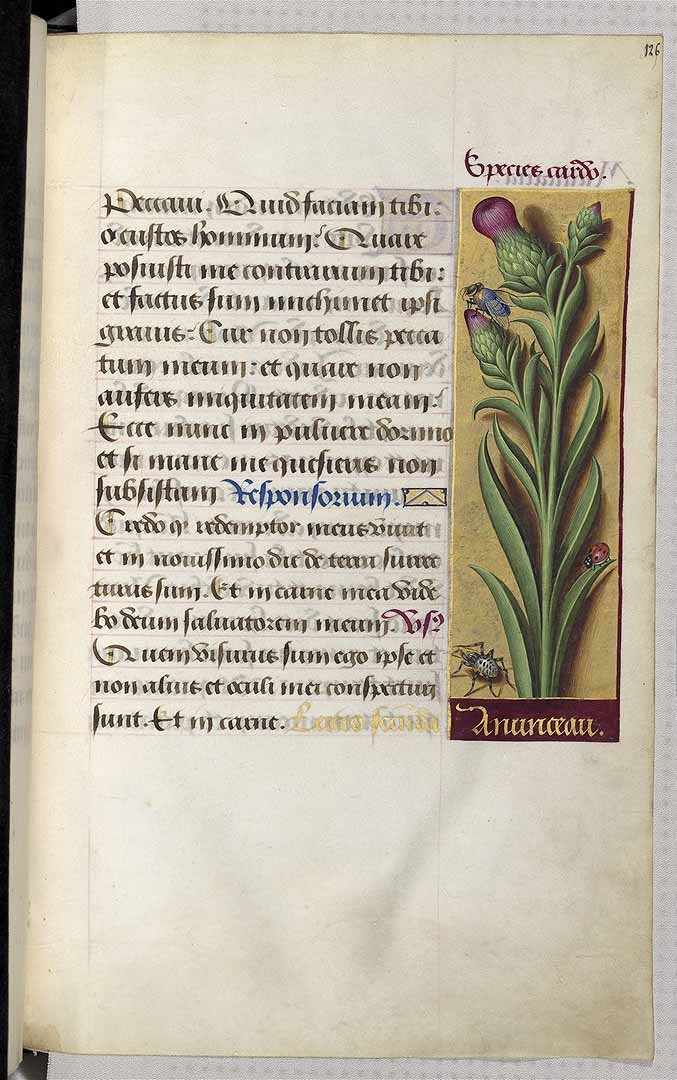 126
Species cardo.
Peccaui. Quid faciam tibi:
o custos hominum? Quare
posuisti me contrarium tibi:
et factus sum michimet ipsi
grauis: Cur non tollis pecca
tum meum: et quare non
aufers iniquitatem meam?
Ecce nunc in puluere dormio
et si mane me quesieris non
subsistam Responsorium.
Credo qͥ redemptor meus viuit
et in nouissimo die de terra surrec
turus sum. Et in carne mea vide
bo deum saluatorem meum. Vs?
Quem visurus sum ego ipse et
non alius et oculi mei conspecturi
sunt. Et in carne. Lectio secunda
Anunceau.